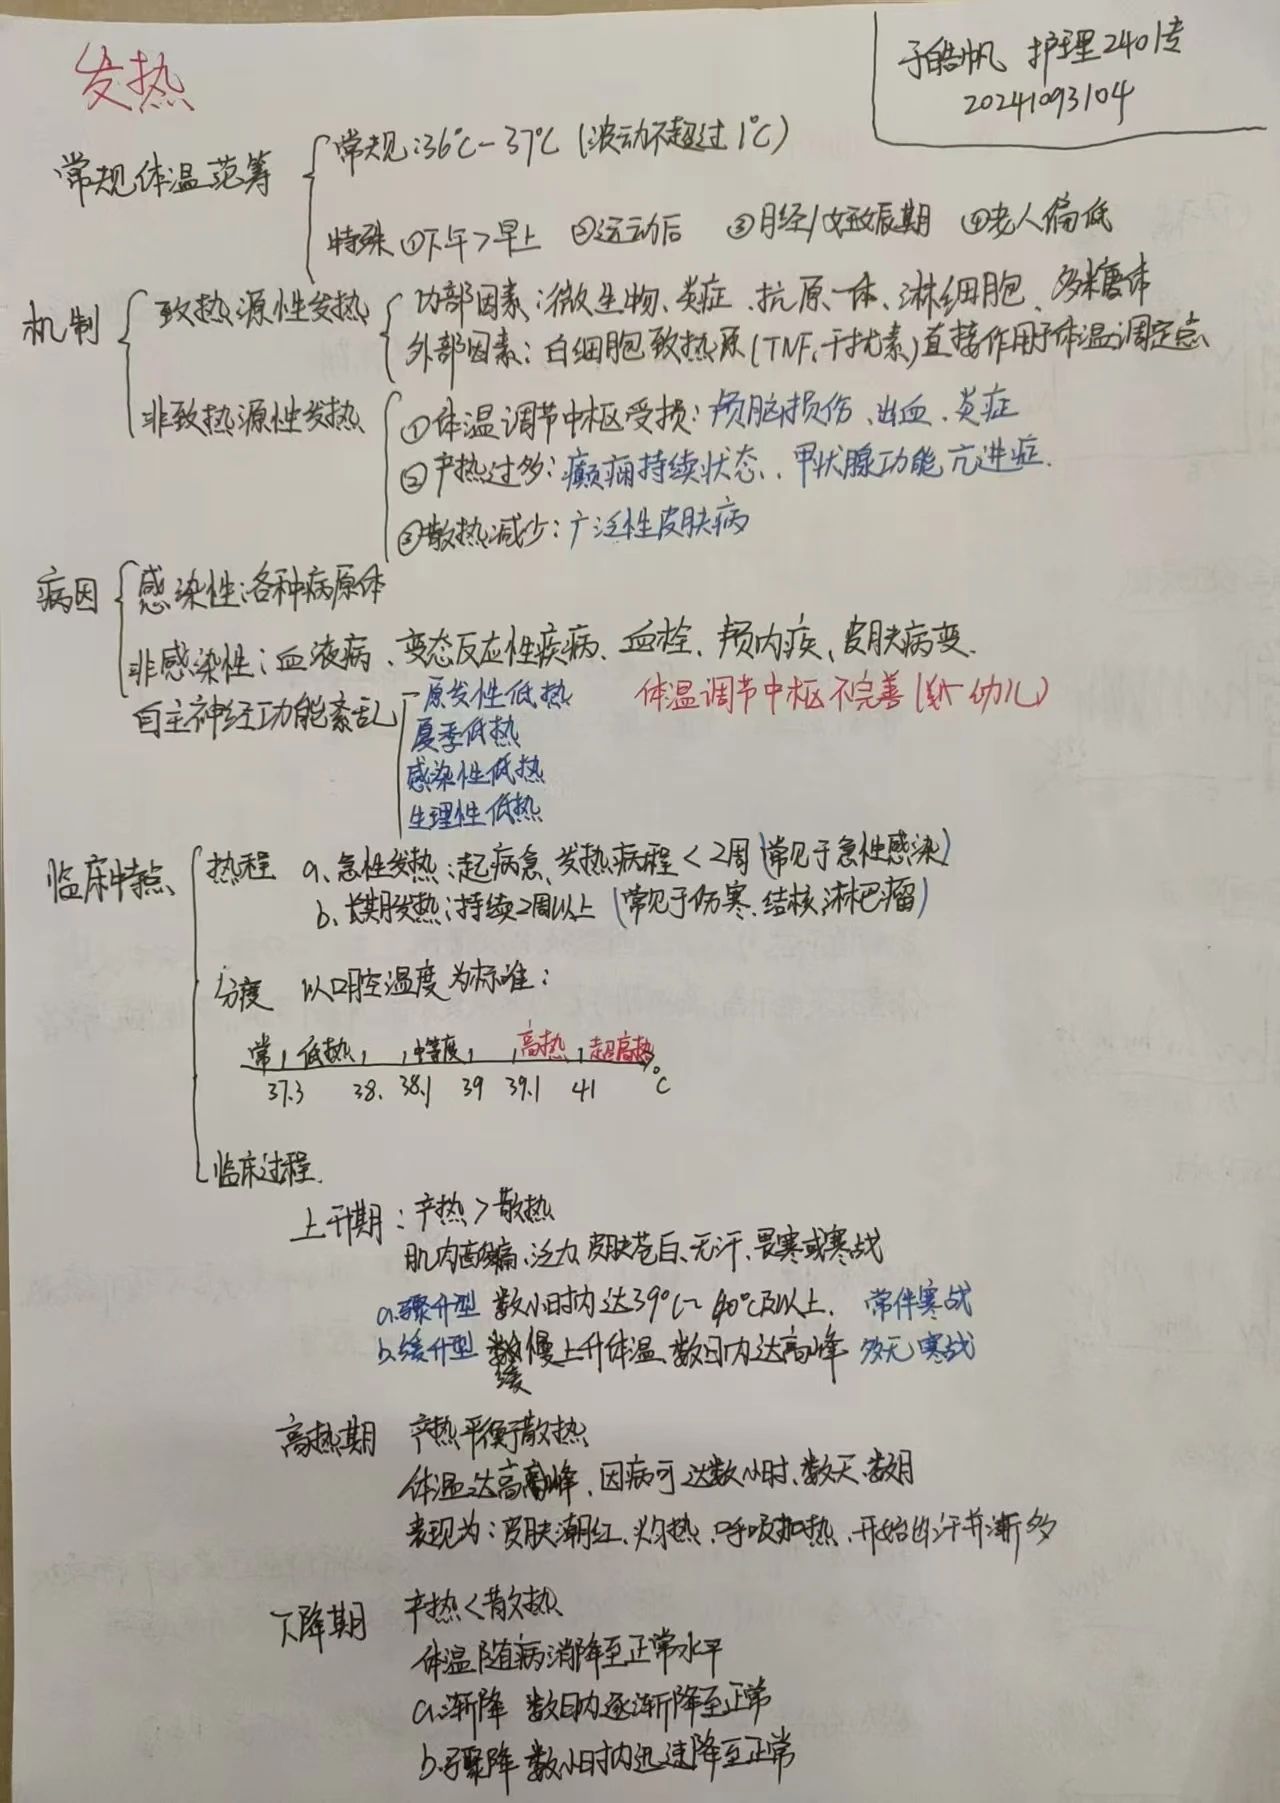 发热
于皓帆 护理2401专
20241093104
常规体温范筹
常规:36℃-37℃(波动不超过1℃)
特殊 ①下午>早上 ②运动后 ③月经/妊娠期 ④老人偏低
机制
致热源性发热
内部因素:微生物、炎症、抗原一体、淋细胞、多糖体
外部因素:白细胞致热原(TNF,干扰素)直接作用于体温调定点
非致热源性发热
①体温调节中枢受损:颅脑损伤、出血、炎症
②产热过多:癫痫持续状态、甲状腺功能亢进症.
③散热减少:广泛性皮肤病
病因
感染性:各种病原体
非感染性:血液病、变态反应性疾病、血栓、颅内疾、皮肤病变.
自主神经功能紊乱
原发性低热
夏季低热
感染性低热
生理性低热
体温调节中枢不完善(幼儿)
临床特点
热程 a、急性发热:起病急、发热病程<2周(常见于急性感染)
b、长期发热:持续2周以上(常见于伤寒、结核,淋巴瘤)
分度 以口腔温度为标准:
常, 低热, 中等度, 高热, 超高热
37.3 38. 38.1 39 39.1 41 ℃
临床过程.
上升期:产热>散热
肌肉酸痛、泛力、皮肤苍白、无汗、畏寒或寒战
a.骤升型 数小时内达39℃~40℃及以上. 常伴寒战
b.缓升型 缓慢上升体温,数日内达高峰 多无寒战
高热期 产热平衡于散热
体温达高峰、因病可达数小时、数天、数月
表现为:皮肤潮红、灼热、呼吸加热、开始出汗并渐多
下降期 产热<散热
体温随病消降至正常水平
a.渐降 数日内逐渐降至正常
b.骤降 数小时内迅速降至正常